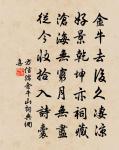 金牛去後久凄涼
好景乾坤亦祠藏
滄海無窮月無盡
從今收拾入詩囊
方信孺金牛山祠與僧
喜